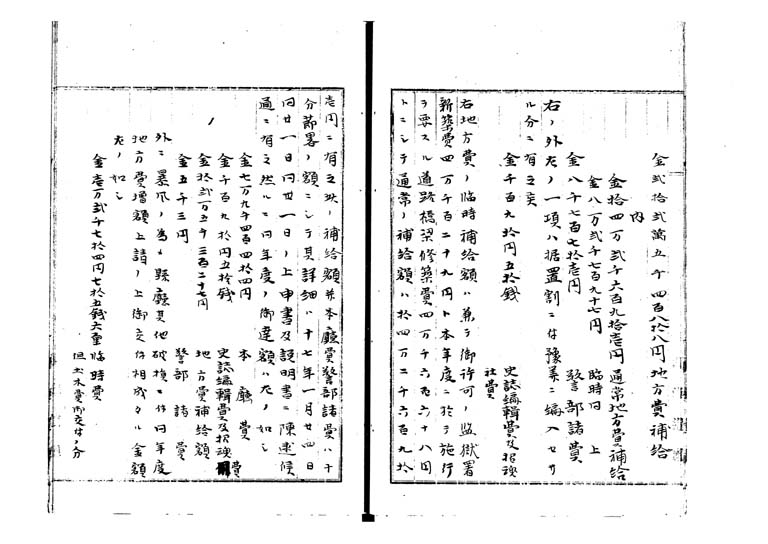 金弐拾弐萬五千四百八拾八円 地方費補給
内
金拾四万弐千六百九拾壱円 通常地方費補給
金八万弐千七百九十七円 臨時同上
金八千七百七拾壱円 警部諸費
右ノ外左ノ一項ハ据置割ニ付豫美ニ編入セサ
ル分ニ有之候
金千百九拾円五拾銭 史誌編輯費及招魂社費
右地方費ノ臨時補給額ハ兼テ御許可ノ監獄署
新築費四万千百二十九円ト本年度ニ於テ施行
ヲ要スル道路橋梁修築費四万千六百六十八円
トニシテ通常ノ補給額ハ拾四万二千六百九拾
壱円ニ有之此ノ補給額并本廳費警部諸費ハ十
分節畧ノ額ニシテ其詳細ハ十七年一月廿四日
同廿一日同廿一日ノ上申書及説明書ニ陳述候
通ニ有之然ルニ同年度ノ御達額ハ左ノ如シ
金七万九千四百四拾四円 本廳費
金千百九拾円五拾銭 史誌編輯費及招魂費
金拾弐万五千三百二十七円 地方費補給額
金五千三円 警部諸費
外ニ暴風ノ為メ縣廳其他破損ニ付同年度
地方費増額上請ノ上御交付相成タル金額
左ノ如シ
金壱万弐千七拾四円七拾五銭六厘 臨時費
但土木費御交付ノ分